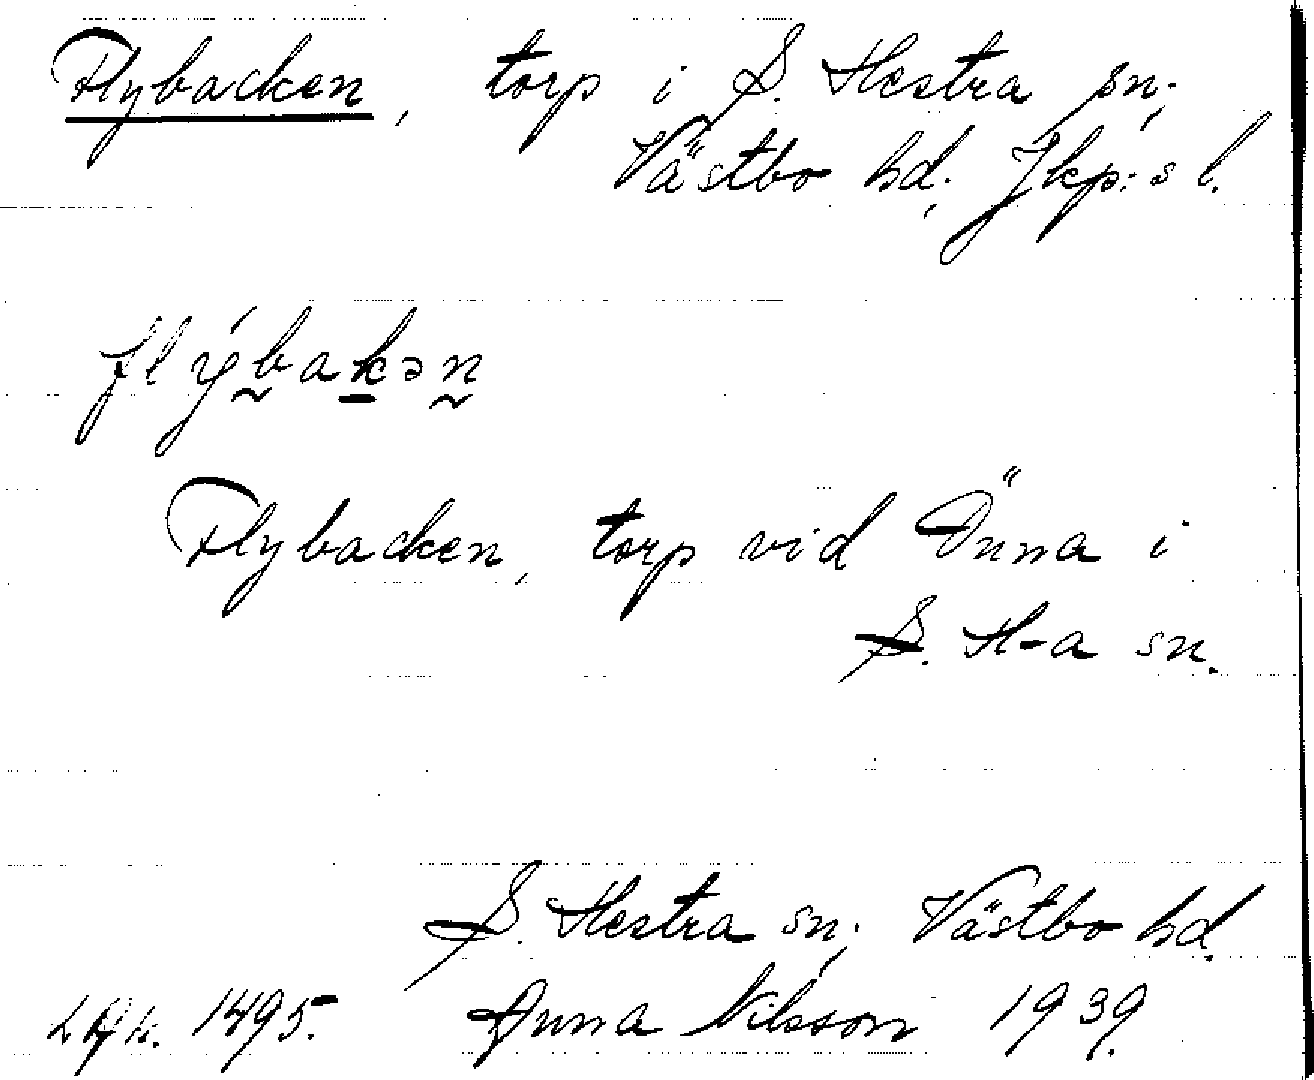 Flybacken, torp i S. Hestra sn.,
Västbo hd., Jkp:s l.
flýbakən
Flybacken, torp vid Önna i
S. H-a sn.
S. Hestra sn., Västbo hd.
1495. Anna Nilsson 1939.